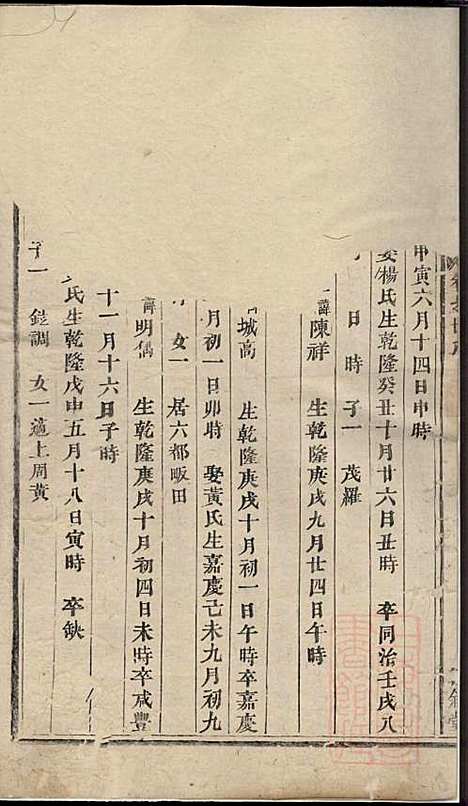 甲寅六月十四日申時
娶楊氏生乾隆癸丑十月廿六日丑時 卒同治壬戌八
日時 子一 茂羅
諱陳祥 生乾隆庚戌九月廿四日午時
城高 生乾隆庚戌十月初一日午時卒嘉慶
月初一日卯時 娶黃氏生嘉慶己未九月初九
女一 居六都畈田
諱明偶 生乾隆庚戌十月初四日未時卒咸豐
十一月十六日子時
氏生乾隆戊申五月十八日寅時 卒缺
子一 鎧調 女一適上周黃